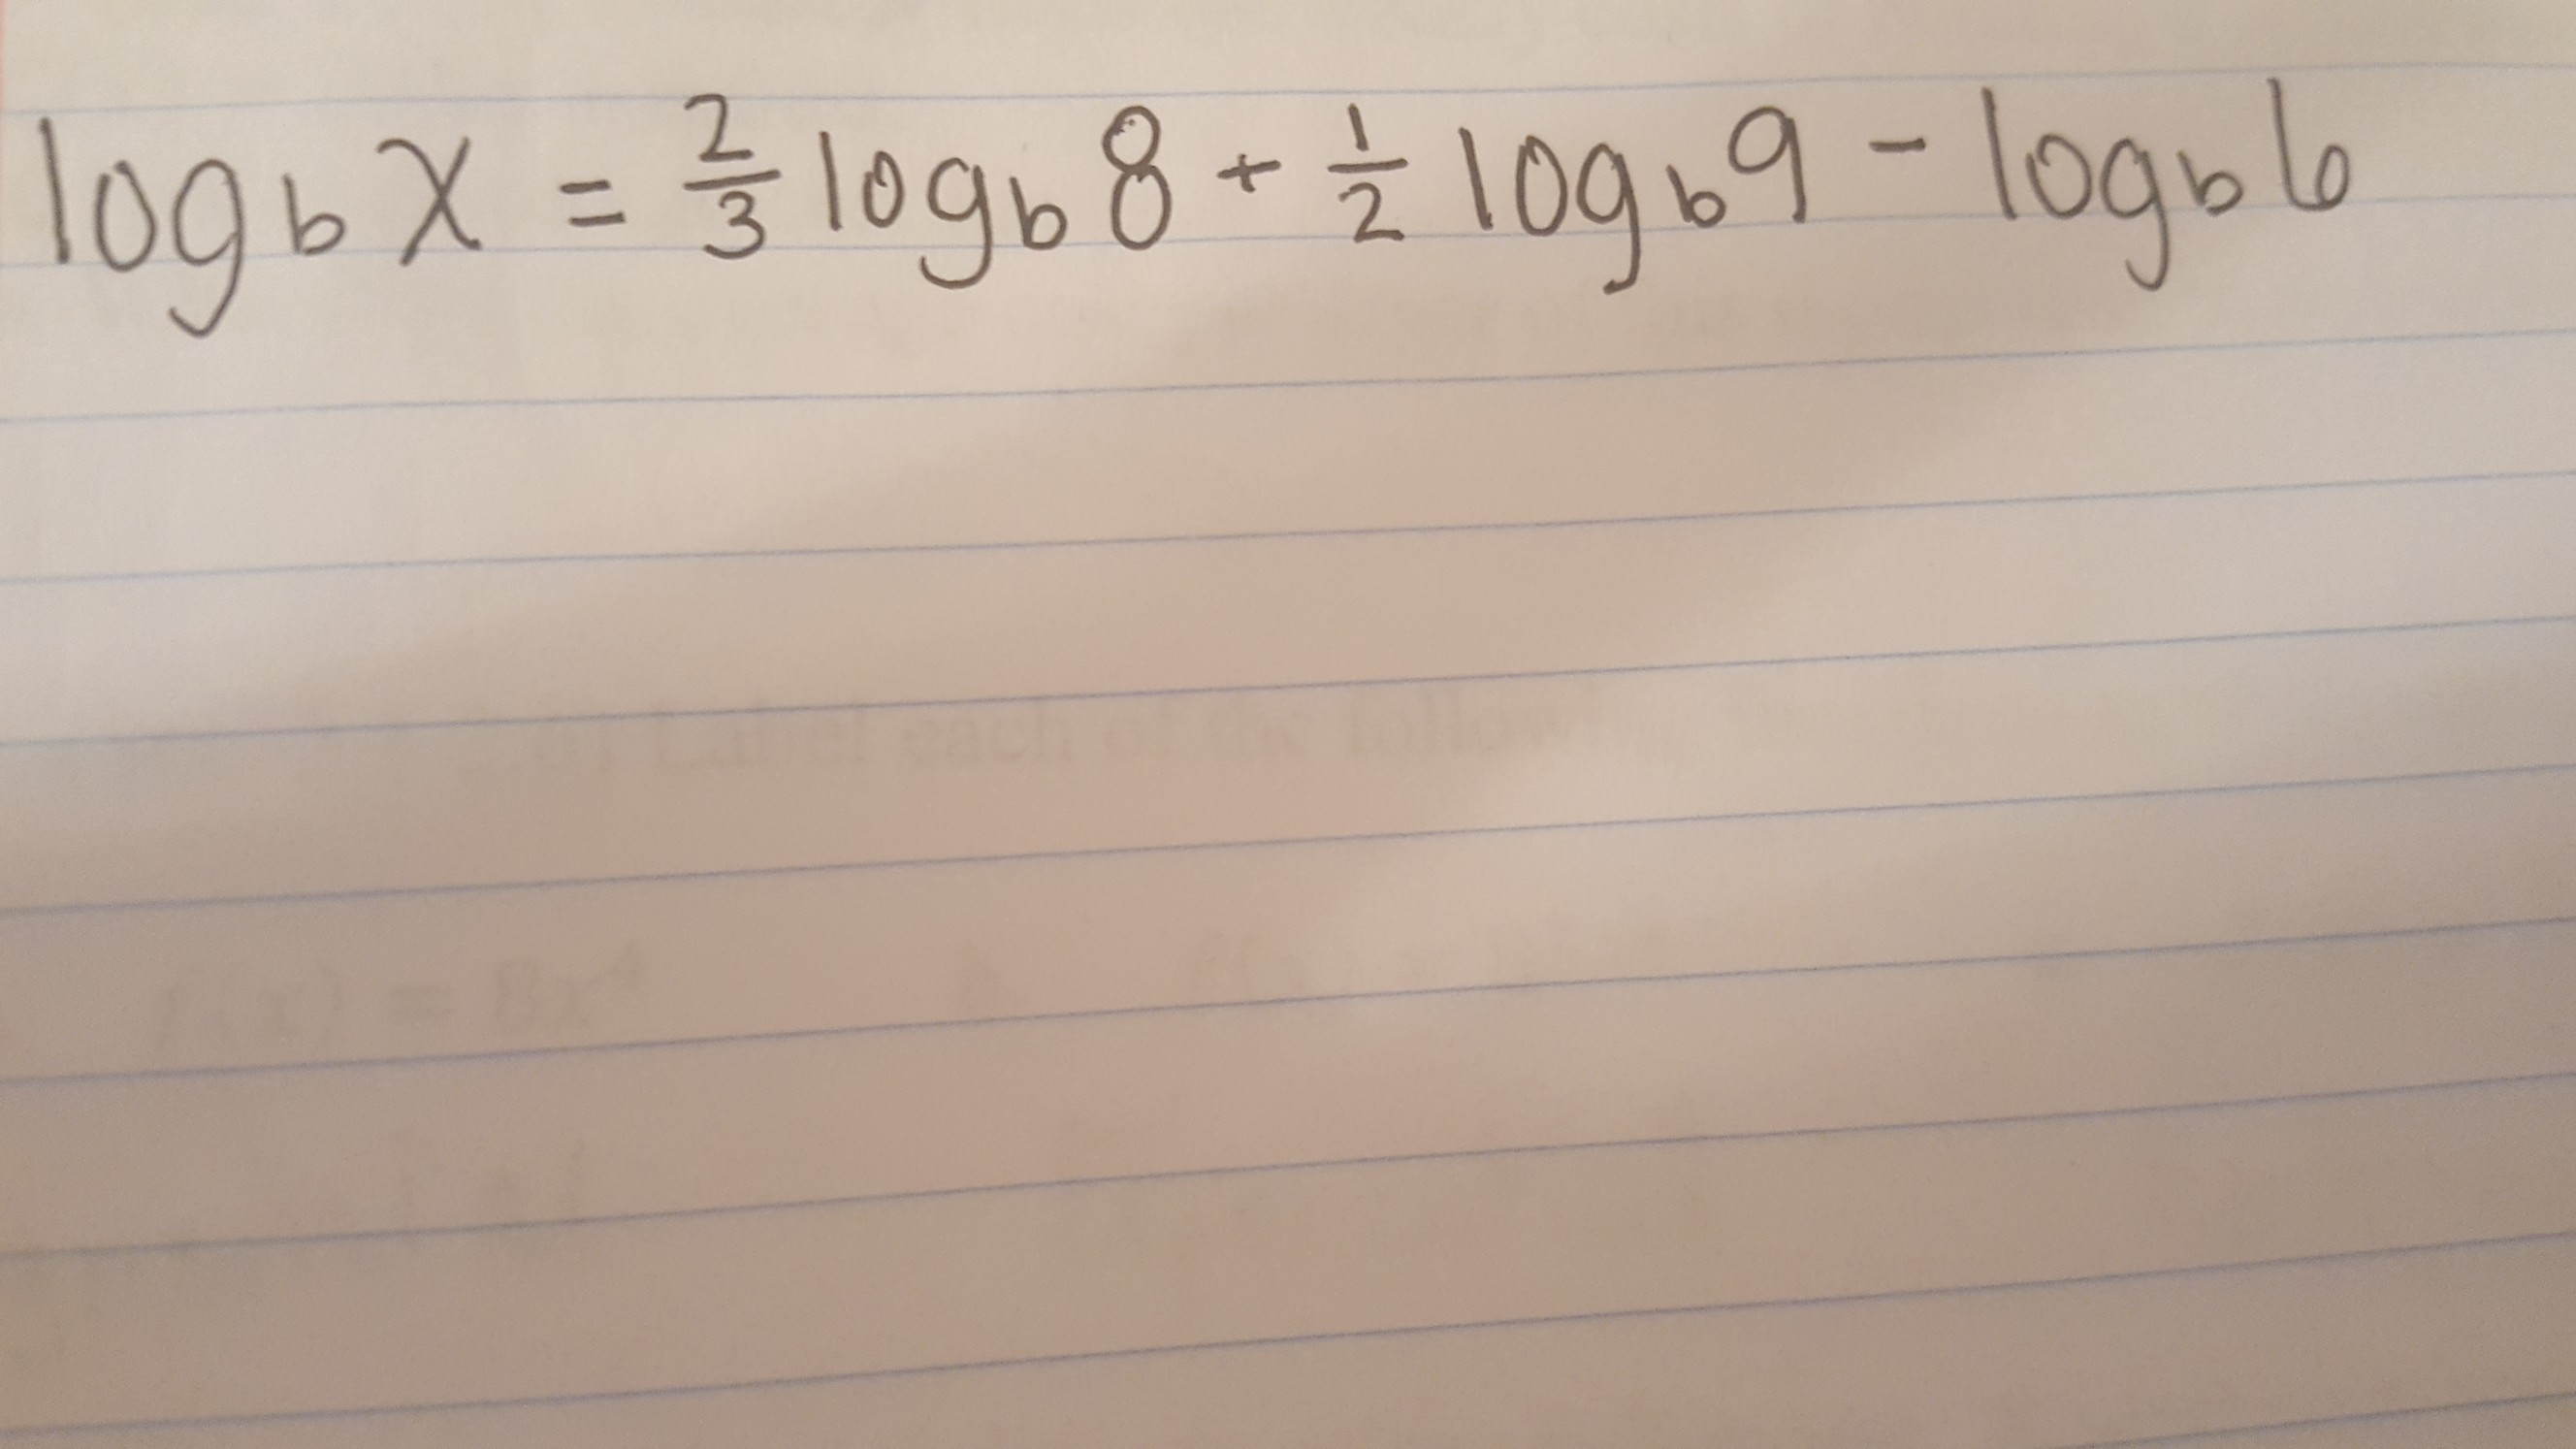 log_b x = 2/3 log_b 8 + 1/2 log_b 9 - log_b 6
Label each of the following
f(x) = 8x⁴